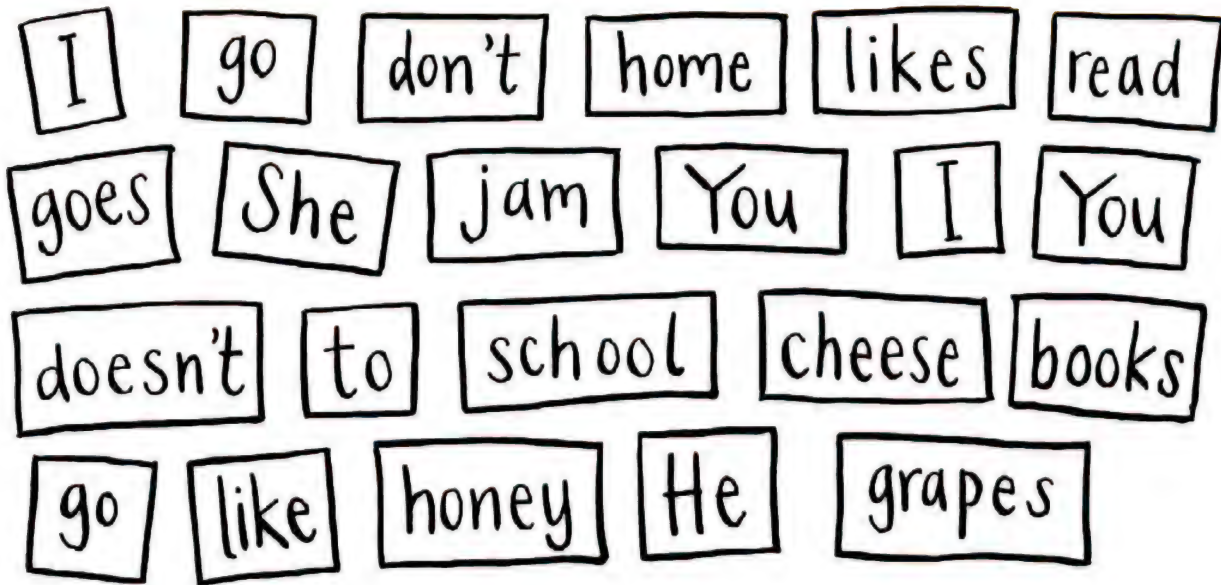 I go don't home likes read
goes She jam You I You
doesn't to school cheese books
go like honey He grapes